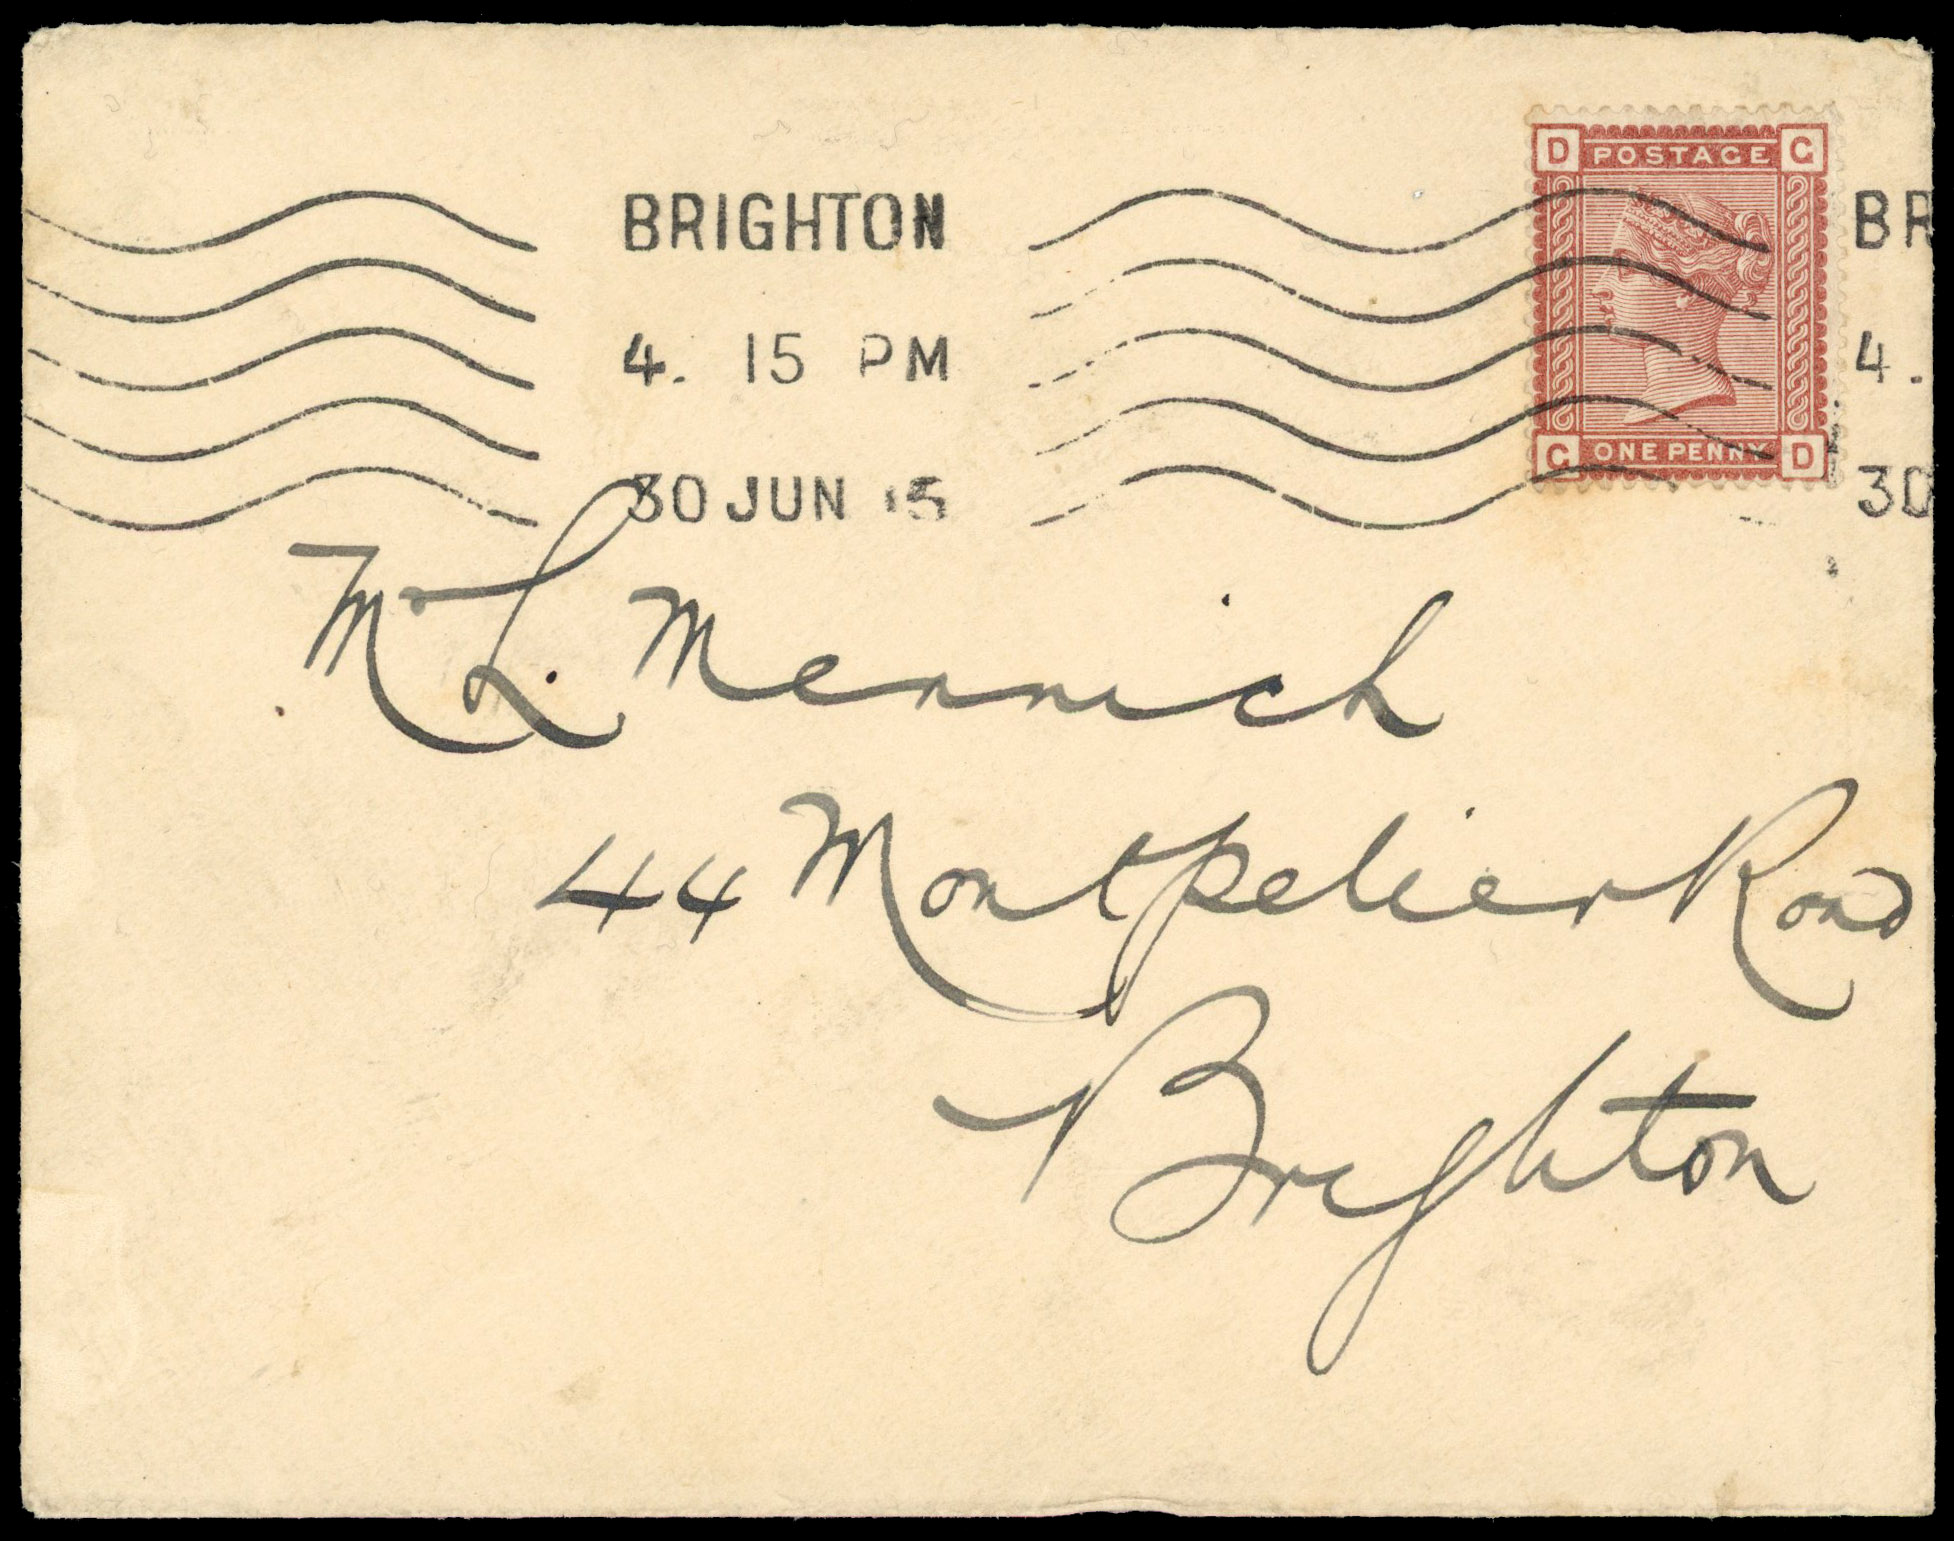 BRIGHTON
4. 15 PM
30 JUN 15
BR
4.
30
D POSTAGE G
G ONE PENNY D
Mr L. Merrick
44 Montpelier Road
Brighton